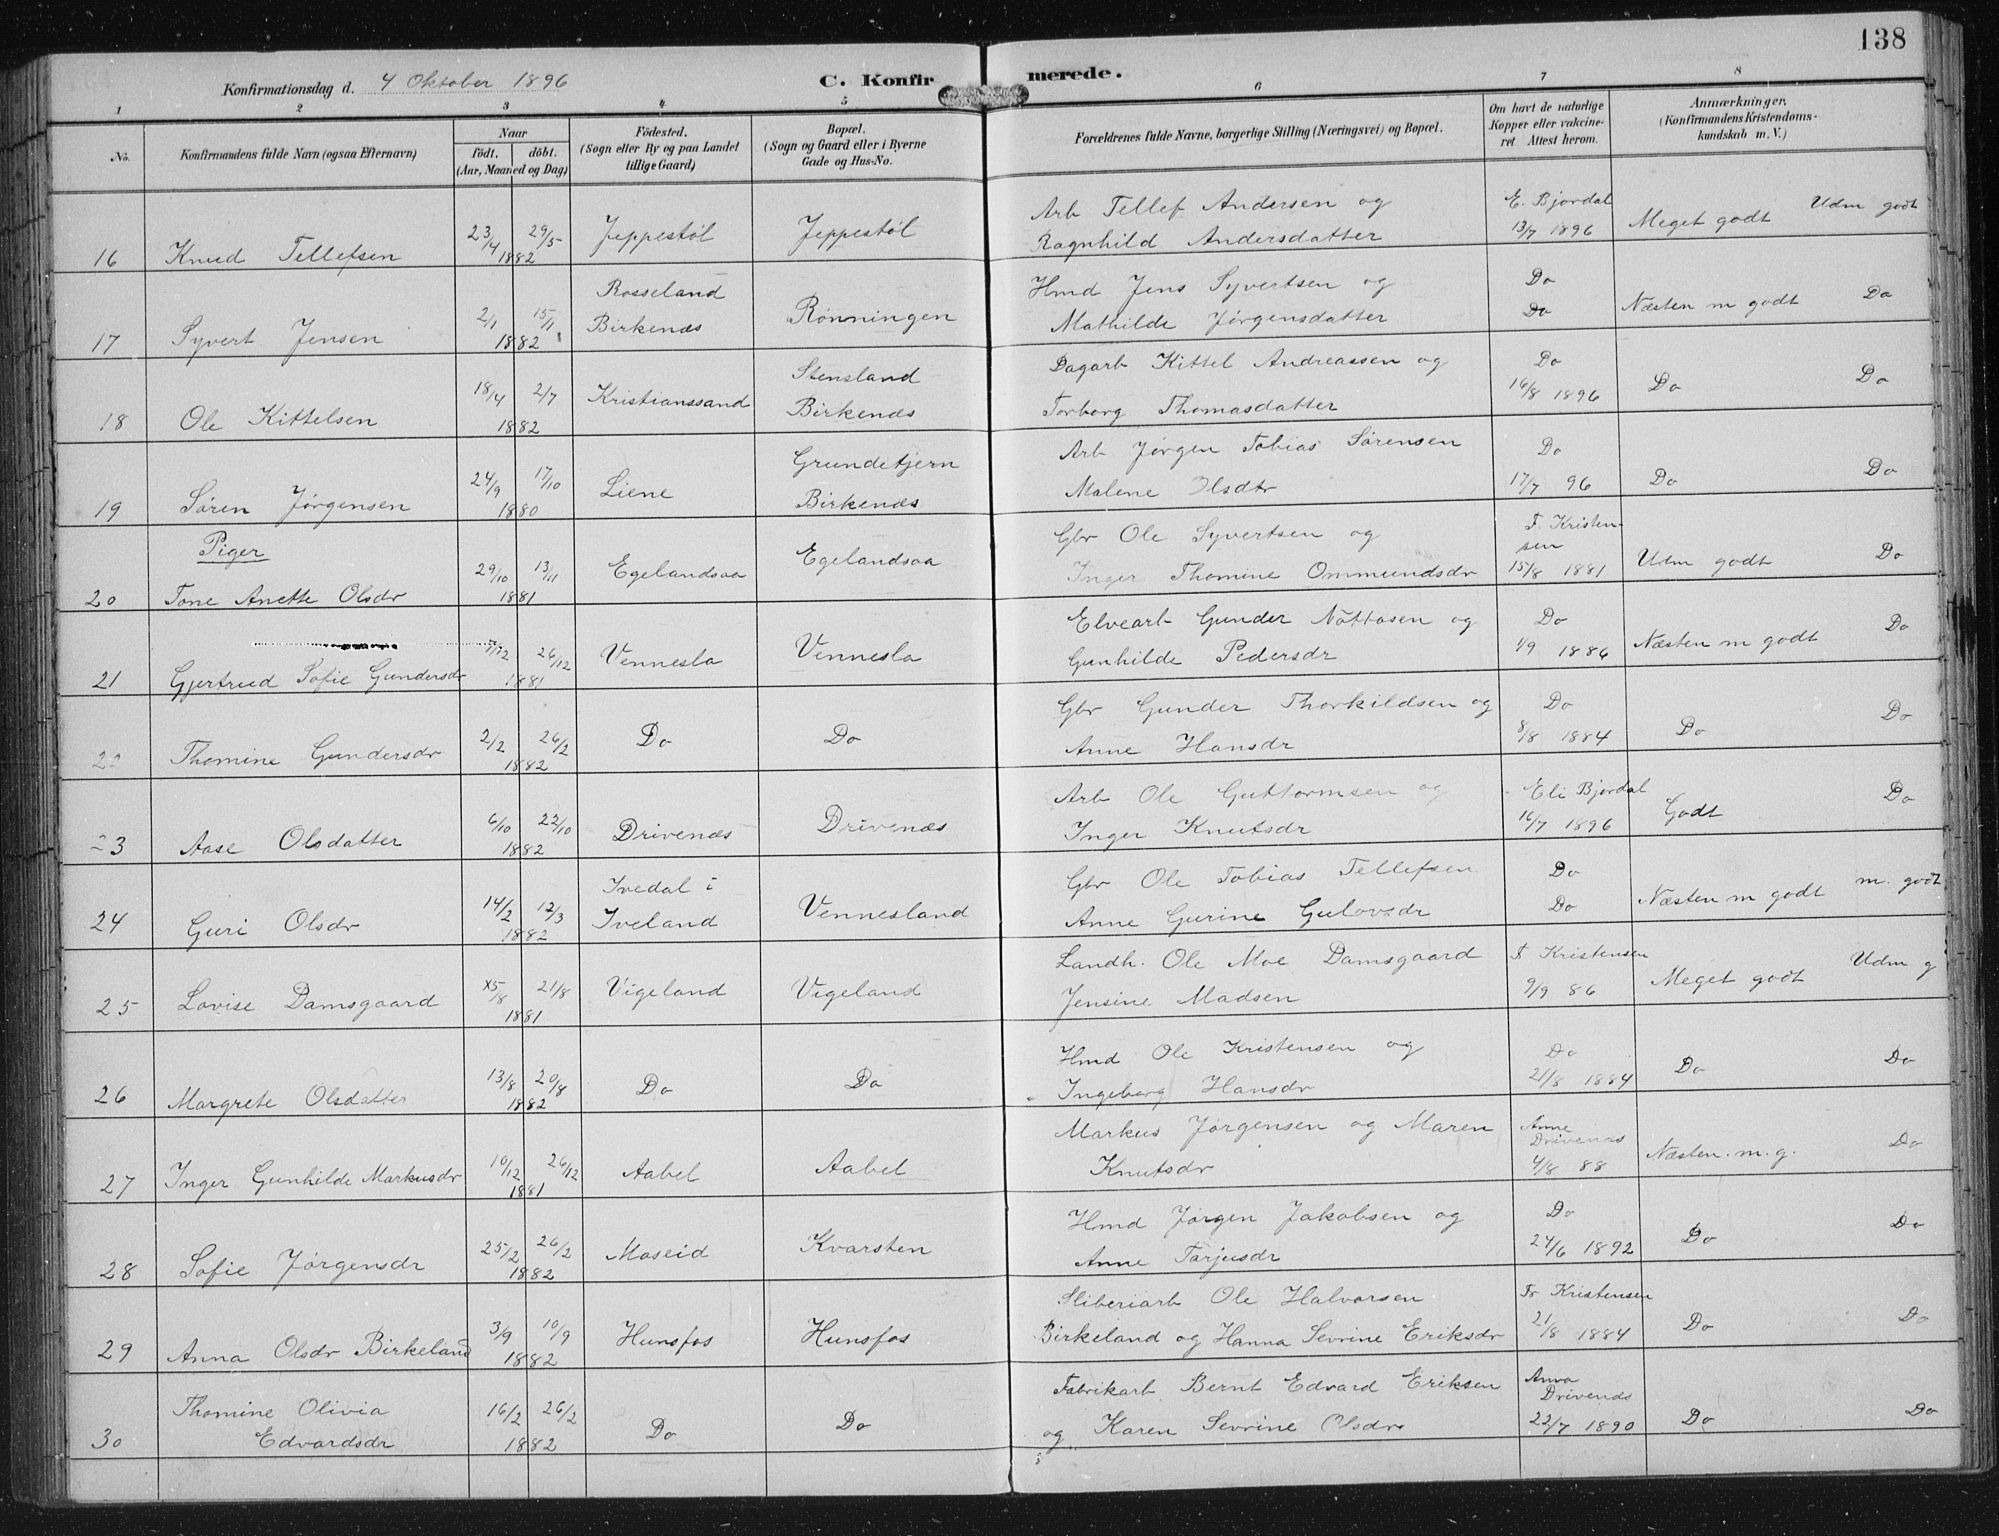 138
Konfirmationsdag d. 4 Oktober 1896 C. Konfir merede.
1 2 3 4 5 6 7 8
No. Konfirmandens fulde Navn (ogsaa Efternavn) Naar födt. döbt. (Aar, Maaned og Dag) Födested. (Sogn eller By og paa Landet tillige Gaard) Bopæl. (Sogn og Gaard eller i Byerne Gade og Hus-No. Forældrenes fulde Navne, borgerlige Stilling (Næringsvei) og Bopæl. Om havt de naturlige Kopper eller vakcineret Attest herom. Anmærkninger. (Konfirmandens Kristendomskundskab m. V.)
16 Knud Tellefsen 23/4 29/5 1882 Jeppestöl Jeppestöl Arb Tellef Andersen og Ragnhild Andersdatter E. Bjordal 13/7 1896 Meget godt Udm godt
17 Syvert Jensen 2/1 15/1 1882 Rosseland Birkenæs Rønningen Hmd Jens Syvertsen og Mathilde Jørgensdatter Do Do Næsten m godt Do
18 Ole Kittelsen 18/4 2/7 1882 Kristianssand Stensland Birkenæs Dagarb Kittel Andreassen og Torborg Thomasdatter Do 16/8 1896 Do Do
19 Søren Jørgensen 24/9 17/10 1880 Liene Grundetjern Birkenæs Arb Jørgen Tobias Sørensen Malene Olsdtr Do 17/7 96 Do Do
Piger
20 Tone Anette Olsdr 29/10 13/11 1881 Egelandsaa Egelandsaa Gbr Ole Syvertsen og Inger Thomine Ommundsdr F. Kristensen 15/8 1881 Udm godt Do
21 Gjertrud Sofie Gundersdr 7/12 26/12 1881 Vennesla Vennesla Elvearb Gunder Nottosen og Gunhilde Pedersdr Do 1/9 1886 Næsten m godt Do
22 Thomine Gundersdr 2/2 26/2 1882 Do Do Gbr Gunder Thorkildsen og Anne Hansdr Do 8/8 1884 Do Do
23 Aase Olsdatter 6/10 22/10 1882 Drivenæs Drivenæs Arb Ole Guttormsen og Inger Knutsdr Eli Bjordal 16/7 1896 Godt Do
24 Guri Olsdr 14/2 12/3 1882 Ivedal i Iveland Vennesland Gbr Ole Tobias Tellefsen Anne Gurine Gulovsdr Do Do Næsten m godt m. godt
25 Lovise Damsgaard 5/8 21/8 1881 Vigeland Vigeland Landh. Ole Moe Damsgaard Jensine Madsen F Kristensen 9/9 86 Meget godt Udm g
26 Margrete Olsdatter 13/8 20/8 1882 Do Do Hmd Ole Kristensen og Ingeborg Hansdr Do 21/8 1884 Do Do
27 Inger Gunhilde Markusdr 10/12 26/12 1881 Aabel Aabel Markus Jørgensen og Maren Knutsdr Anne Drivenæs 4/8 88 Næsten. m. g. Do
28 Sofie Jørgensdr 25/2 26/2 1882 Moseid Kvarsten Hmd Jørgen Jakobsen og Anne Tarjusdr Do 24/6 1892 Do Do
29 Anna Olsdr Birkeland 3/9 10/9 1882 Hunsfos Hunsfos Sliberiarb Ole Halvorsen Birkeland og Hanna Sevrine Eriksdr Fr Kristensen 21/8 1884 Do Do
30 Thomine Olivia Edvardsdr 16/2 26/2 1882 Do Do Fabrikarb Bernt Edvard Eriksen og Karen Sevrine Olsdr Anna Drivenæs 22/7 1890 Do Do